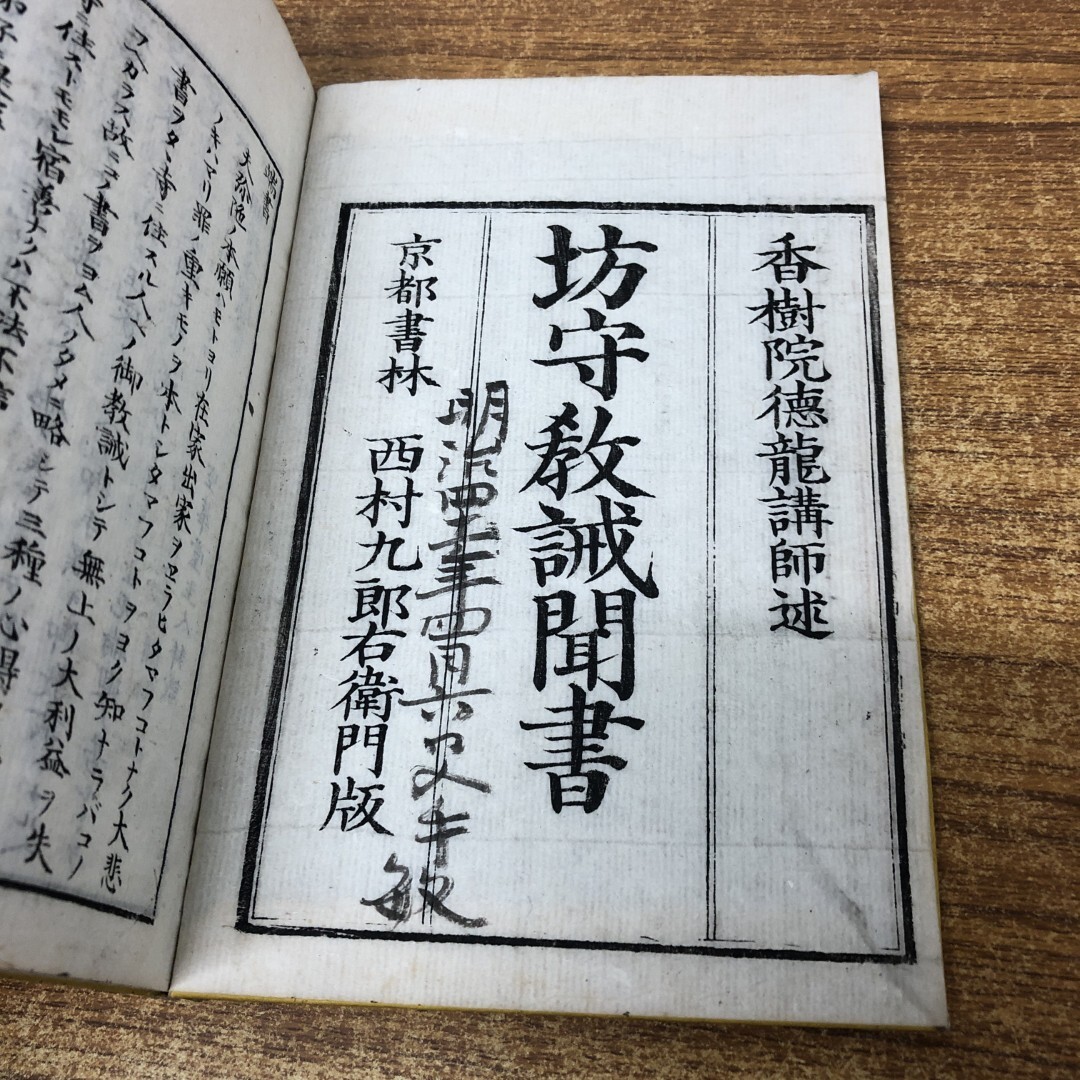 香樹院德龍講師述
坊守教誡聞書
京都書林 西村九郎右衛門版
明治四 四月六日 敏
端書
夫弥陀ノ本願ハモトヨリ在家出家ヲヱラヒタマフコトナク大悲
ノキハマリ罪ノ重キモノヲ本トシタマフコトヲヨク知ナラバコノ
書ヲタヽ寺ニ住スル人ヘノ御教誡トシテ無上ノ大利益ヲ失
フヘカラス故ニコノ書ヲヨム人ノタメニ略シテ三種ノ心得
宿善ナクハ不法不信